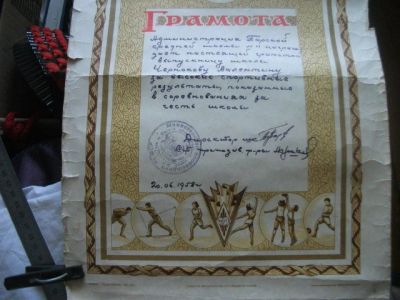 Грамота
Администрация Тарской
средней школы №
дает настоящей грамотой
выпускнику школы
Чернакову Валентину
за высокие спортивные
результаты, показанные
в соревнованиях за
честь школы
Директор шк
20.06.1958 г